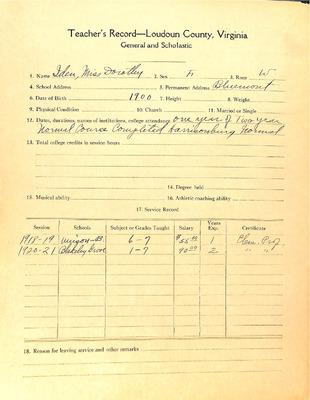 Teacher's Record—Loudoun County, Virginia
General and Scholastic
1. Name Iden, Miss Dorothy 2. Sex F 3. Race W
4. School Address 5. Permanent Address Bluemont
6. Date of Birth 1900 7. Height 8. Weight
9. Physical Condition 10. Church 11. Married or Single
12. Dates, durations, names of institutions, college attendance one year of Two year
Normal Course Completed Harrisonburg Normal
13. Total college credits in session hours
14. Degree held
15. Musical ability 16. Athletic coaching ability
17. Service Record
Session Schools Subject or Grades Taught Salary Years Exp. Certificate
1918-19 6-7 $55.00 1 Elem. Prof.
1920-21 Blakeley Grove 1-7 90.00 2 " "
18. Reason for leaving service and other remarks